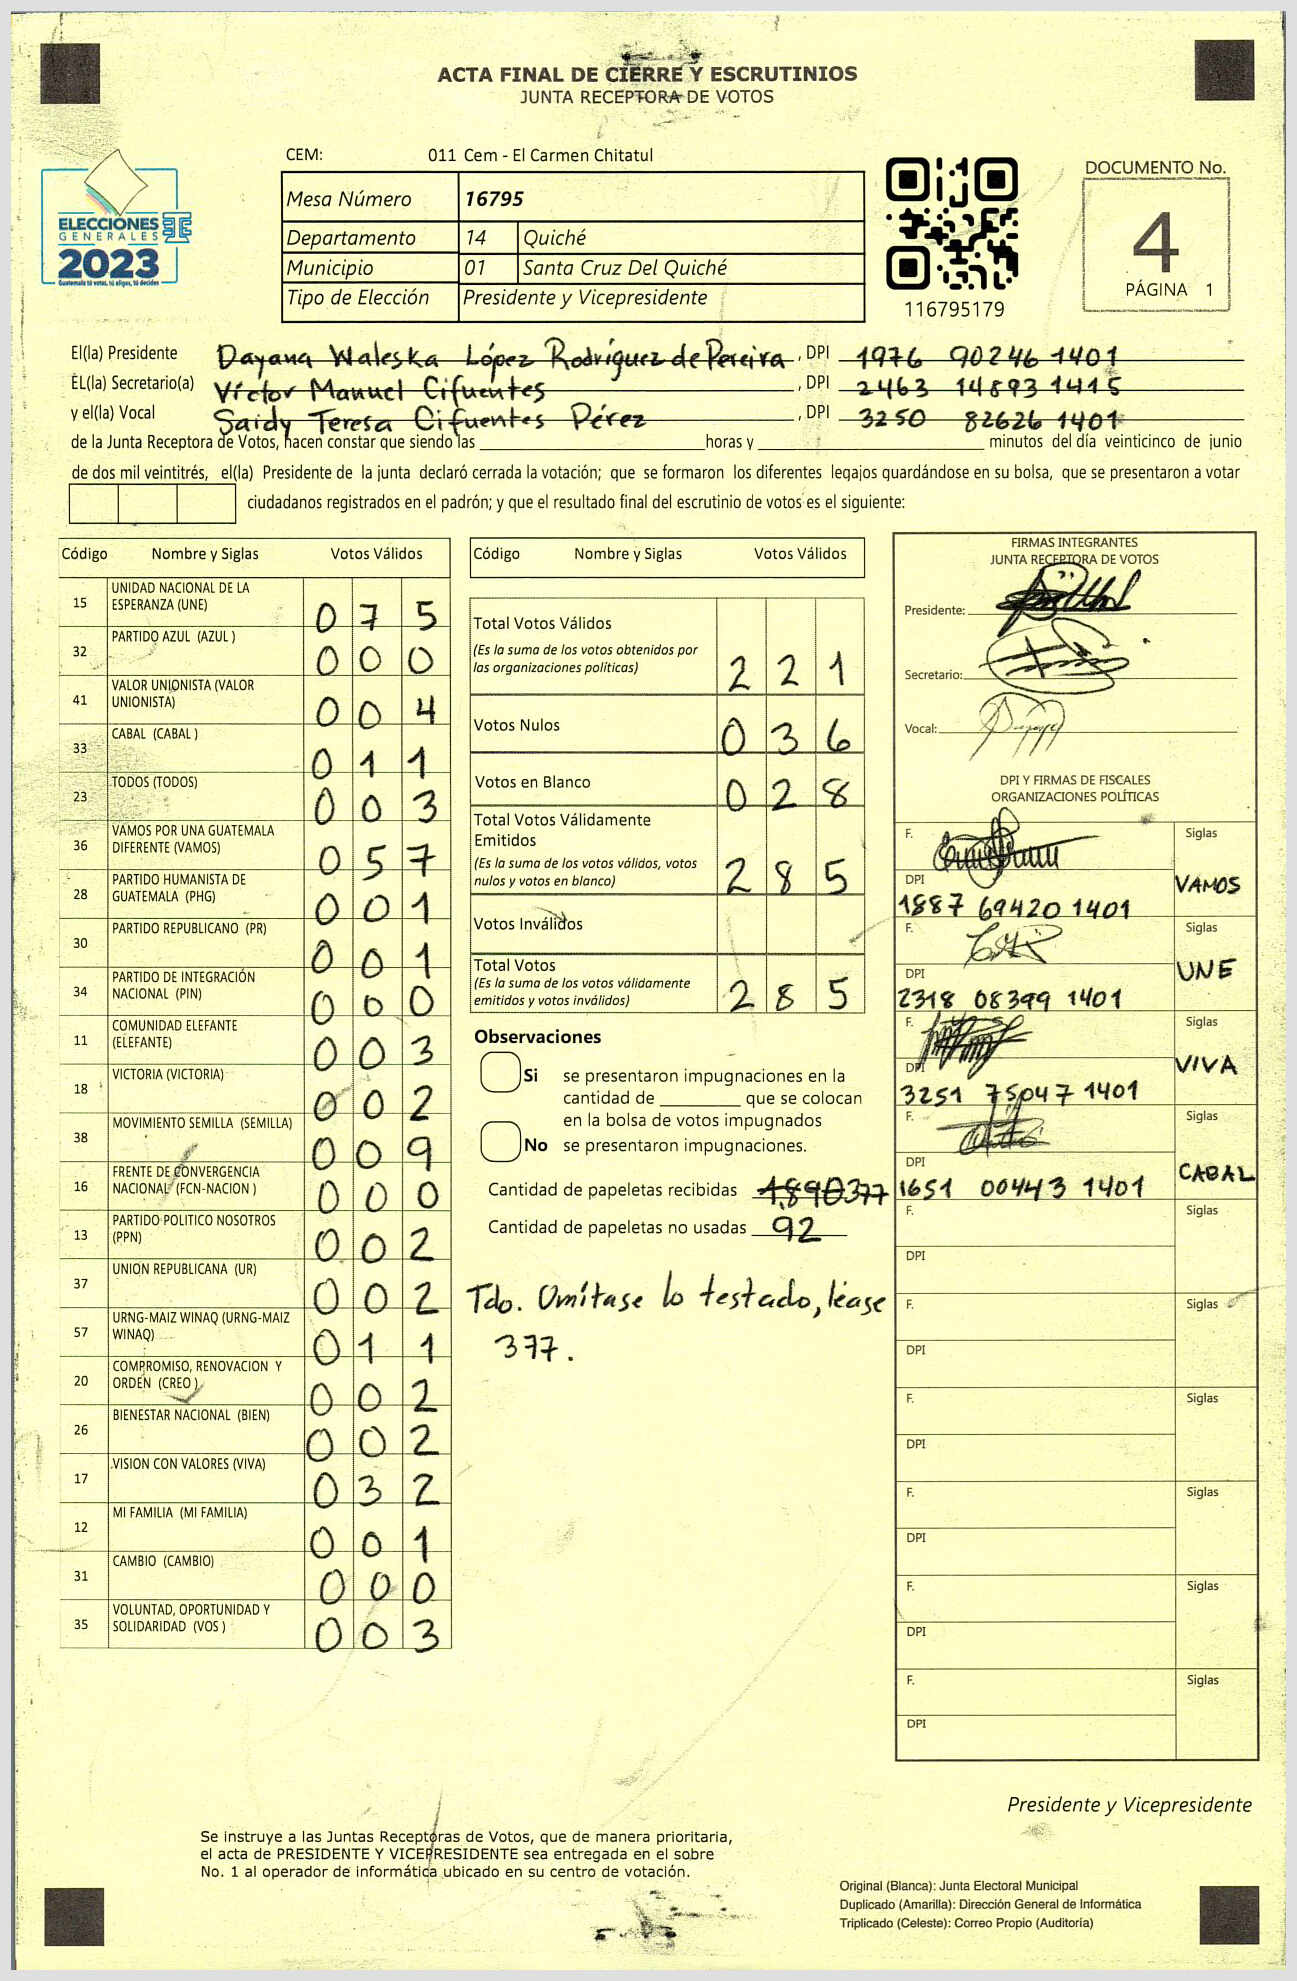 ACTA FINAL DE CIERRE Y ESCRUTINIOS
JUNTA RECEPTORA DE VOTOS
CEM: 011 Cem - El Carmen Chitatul
ELECCIONES
GENERALES
2023
Guatemala tú votas, tú eliges, tú decides
Mesa Número 16795
Departamento 14 Quiché
Municipio 01 Santa Cruz Del Quiché
Tipo de Elección Presidente y Vicepresidente
116795179
DOCUMENTO No.
4
PÁGINA 1
El(la) Presidente Dayana Waleska López Rodríguez de Pereira, DPI 1976 90246 1401
EL(la) Secretario(a) Víctor Manuel Cifuentes, DPI 2463 14893 1415
y el(la) Vocal Saidy Teresa Cifuentes Pérez, DPI 3250 82626 1401
de la Junta Receptora de Votos, hacen constar que siendo las horas y minutos del día veinticinco de junio
de dos mil veintitrés, el(la) Presidente de la junta declaró cerrada la votación; que se formaron los diferentes legajos guardándose en su bolsa, que se presentaron a votar
ciudadanos registrados en el padrón; y que el resultado final del escrutinio de votos es el siguiente:
Código Nombre y Siglas Votos Válidos
15 UNIDAD NACIONAL DE LA ESPERANZA (UNE) 0 7 5
32 PARTIDO AZUL (AZUL ) 0 0 0
41 VALOR UNIONISTA (VALOR UNIONISTA) 0 0 4
33 CABAL (CABAL ) 0 1 1
23 TODOS (TODOS) 0 0 3
36 VAMOS POR UNA GUATEMALA DIFERENTE (VAMOS) 0 5 7
28 PARTIDO HUMANISTA DE GUATEMALA (PHG) 0 0 1
30 PARTIDO REPUBLICANO (PR) 0 0 1
34 PARTIDO DE INTEGRACIÓN NACIONAL (PIN) 0 0 0
11 COMUNIDAD ELEFANTE (ELEFANTE) 0 0 3
18 VICTORIA (VICTORIA) 0 0 2
38 MOVIMIENTO SEMILLA (SEMILLA) 0 0 9
16 FRENTE DE CONVERGENCIA NACIONAL (FCN-NACION ) 0 0 0
13 PARTIDO POLITICO NOSOTROS (PPN) 0 0 2
37 UNION REPUBLICANA (UR) 0 0 2
57 URNG-MAIZ WINAQ (URNG-MAIZ WINAQ) 0 1 1
20 COMPROMISO, RENOVACION Y ORDEN (CREO ) 0 0 2
26 BIENESTAR NACIONAL (BIEN) 0 0 2
17 VISION CON VALORES (VIVA) 0 3 2
12 MI FAMILIA (MI FAMILIA) 0 0 1
31 CAMBIO (CAMBIO) 0 0 0
35 VOLUNTAD, OPORTUNIDAD Y SOLIDARIDAD (VOS ) 0 0 3
Código Nombre y Siglas Votos Válidos
Total Votos Válidos
(Es la suma de los votos obtenidos por
las organizaciones políticas) 2 2 1
Votos Nulos 0 3 6
Votos en Blanco 0 2 8
Total Votos Válidamente
Emitidos
(Es la suma de los votos válidos, votos
nulos y votos en blanco) 2 8 5
Votos Inválidos
Total Votos
(Es la suma de los votos válidamente
emitidos y votos inválidos) 2 8 5
Observaciones
Si se presentaron impugnaciones en la
cantidad de que se colocan
en la bolsa de votos impugnados
No se presentaron impugnaciones.
Cantidad de papeletas recibidas 377
Cantidad de papeletas no usadas 92
Tdo. Omítase lo testado, léase
377.
FIRMAS INTEGRANTES
JUNTA RECEPTORA DE VOTOS
Presidente:
Secretario:
Vocal:
DPI Y FIRMAS DE FISCALES
ORGANIZACIONES POLÍTICAS
F. Siglas
DPI VAMOS
1887 69420 1401
F. Siglas
DPI UNE
2318 08399 1401
F. Siglas
DPI VIVA
3251 75047 1401
F. Siglas
DPI CABAL
1651 00443 1401
F. Siglas
DPI
F. Siglas
DPI
F. Siglas
DPI
F. Siglas
DPI
F. Siglas
DPI
F. Siglas
DPI
Presidente y Vicepresidente
Se instruye a las Juntas Receptoras de Votos, que de manera prioritaria,
el acta de PRESIDENTE Y VICEPRESIDENTE sea entregada en el sobre
No. 1 al operador de informática ubicado en su centro de votación.
Original (Blanca): Junta Electoral Municipal
Duplicado (Amarilla): Dirección General de Informática
Triplicado (Celeste): Correo Propio (Auditoría)